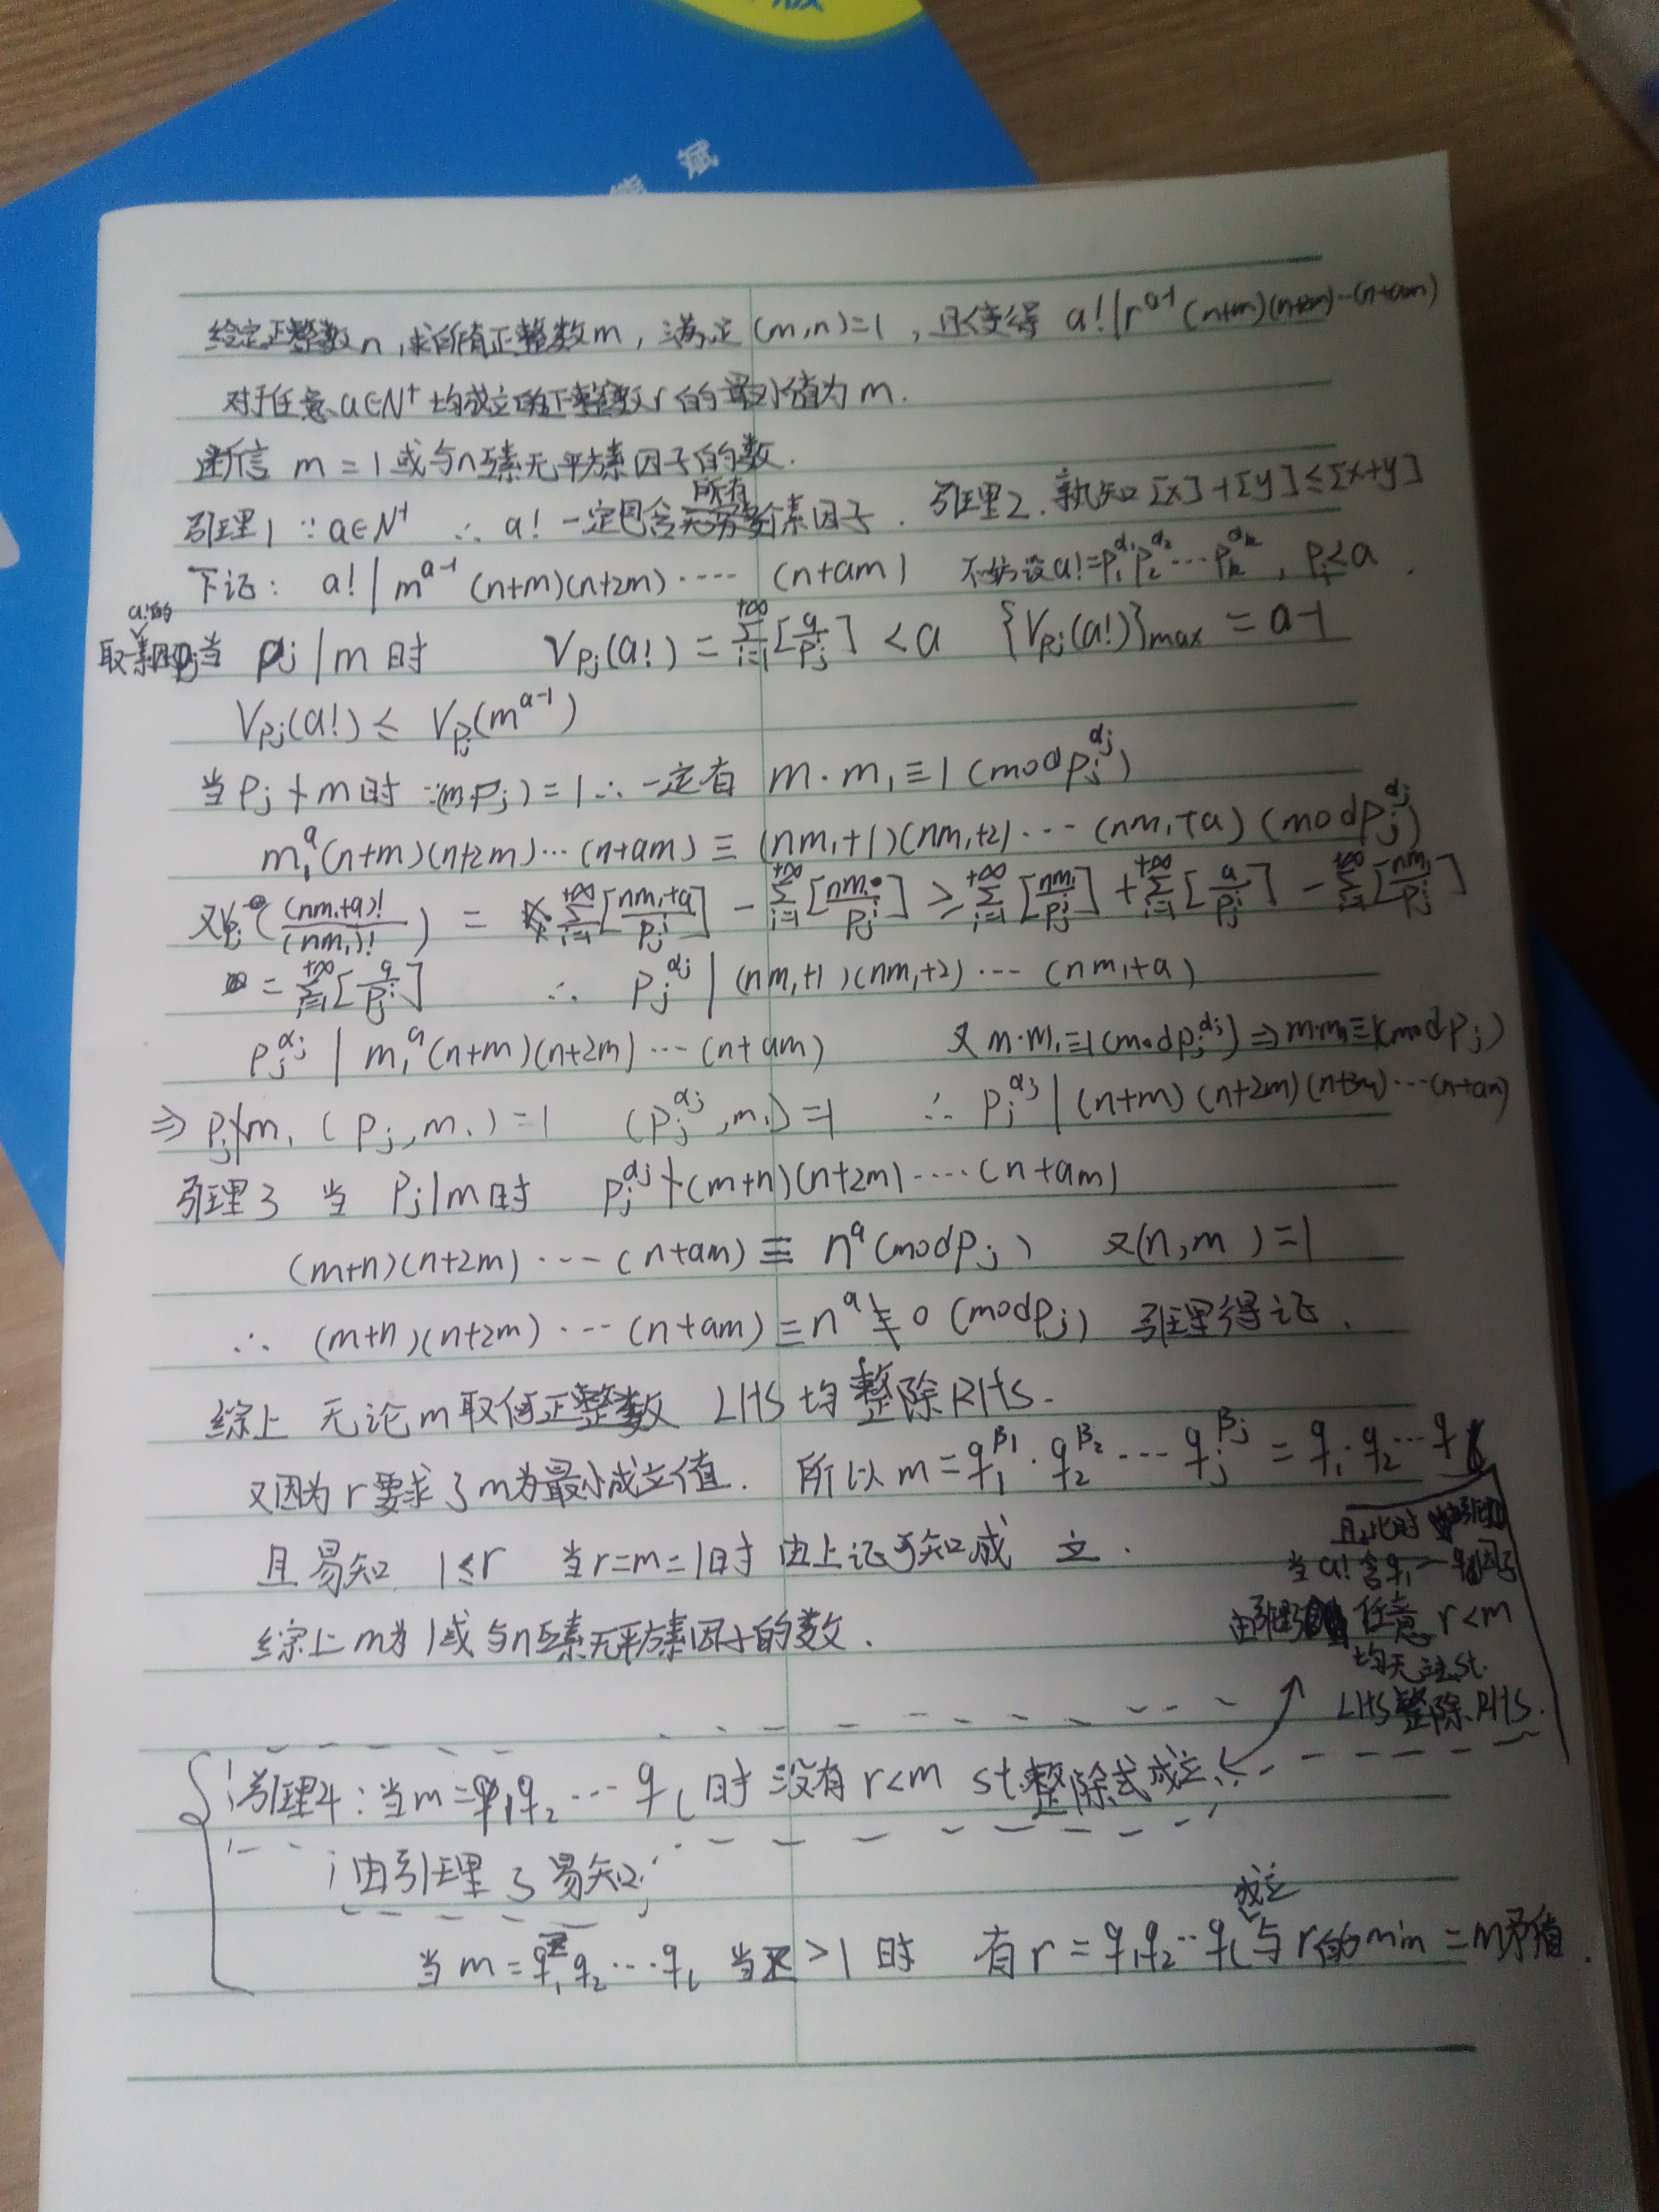 版
能 赋
给定正整数n,求所有正整数m,满足(m,n)=1,且使得 a!|r^{a-1}(n+m)(n+2m)…(n+am)
对于任意a∈N⁺均成立的正整数r的最小值为m.
断言 m=1或与n互素无平方素因子的数.
引理1 ∵a∈N⁺ ∴ a!一定包含所有素因子. 引理2.熟知[x]+[y]≤[x+y]
下证: a!|m^{a-1}(n+m)(n+2m)····(n+am) 不妨设a!=p₁^{α₁}p₂^{α₂}…p_k^{α_k}, p_i≤a.
取a!的素因子p_j当 p_j|m时 V_{p_j}(a!)=∑_{i=1}^{+∞}[a/p_j^i]<a {V_{p_j}(a!)}max=a-1
V_{p_j}(a!)≤V_{p_j}(m^{a-1})
当p_j∤m时∵(m,p_j)=1∴一定有 m·m₁≡1(mod p_j^{α_j})
m₁^a(n+m)(n+2m)…(n+am)≡(nm₁+1)(nm₁+2)…(nm₁+a)(mod p_j^{α_j})
又V_{p_j}((nm₁+a)!/(nm₁)!)=∑_{i=1}^{+∞}[(nm₁+a)/p_j^i]-∑_{i=1}^{+∞}[nm₁/p_j^i]≥∑_{i=1}^{+∞}[nm₁/p_j^i]+∑_{i=1}^{+∞}[a/p_j^i]-∑_{i=1}^{+∞}[nm₁/p_j^i]
=∑_{i=1}^{+∞}[a/p_j^i] ∴ p_j^{α_j}|(nm₁+1)(nm₁+2)…(nm₁+a)
p_j^{α_j}|m₁^a(n+m)(n+2m)…(n+am) 又m·m₁≡1(mod p_j^{α_j})⇒m·m₁≡1(mod p_j)
⇒p_j∤m₁(p_j,m₁)=1 (p_j^{α_j},m₁)=1 ∴ p_j^{α_j}|(n+m)(n+2m)(n+3m)…(n+am)
引理3 当 p_j|m时 p_j^{α_j}∤(m+n)(n+2m)····(n+am)
(m+n)(n+2m)…(n+am)≡n^a(mod p_j) 又(n,m)=1
∴ (m+n)(n+2m)…(n+am)≡n^a≢0(mod p_j) 引理得证.
综上 无论m取何正整数 LHS均整除RHS.
又因为r要求了m为最小成立值. 所以m=q₁^{β₁}·q₂^{β₂}…q_j^{β_j}=q₁·q₂…q
且易知 1≤r 当r=m=1时由上证可知成立.
综上m为1或与n互素无平方素因子的数.
且此时
当a!含q₁-q因子
任意r<m
均无法st.
LHS整除RHS.
引理4:当m=q₁q₂…q_l时没有r<m st.整除式成立
由引理3易知
当m=q₁^z q₂…q_l 当z>1时 有r=q₁q₂…q_l成立与r的min=m矛盾.